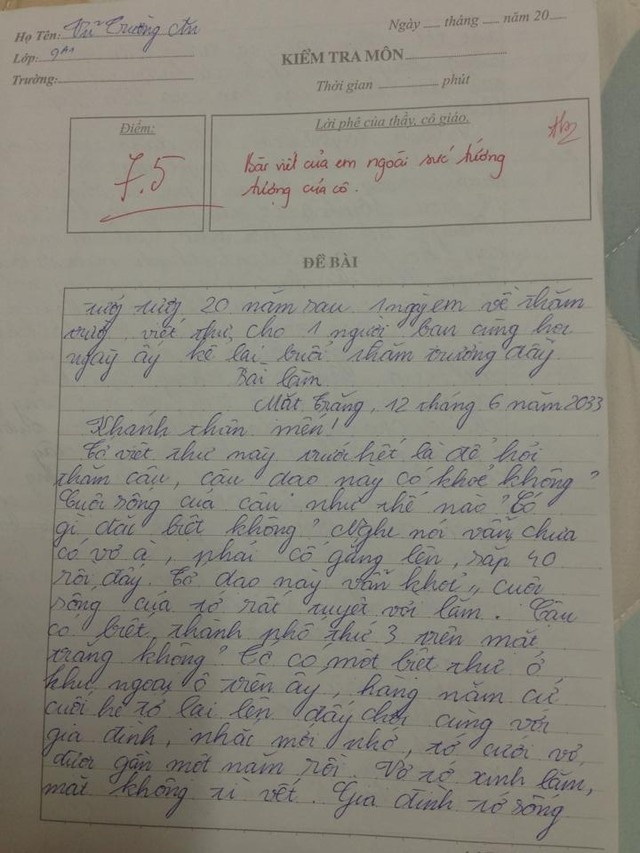 Họ Tên: Vũ Trường An
Ngày tháng năm 20
Lớp: 9A1
KIỂM TRA MÔN
Trường:
Thời gian phút
Điểm:
7.5
Lời phê của thầy, cô giáo.
Bài viết của em ngoài sức tưởng
tượng của cô.
ĐỀ BÀI
20 năm sau 1 ngày em về thăm
trường, viết thư cho 1 người bạn cùng học
ngày ấy kể lại buổi thăm trường đầy
Bài làm
Mặt Trăng, 12 tháng 6 năm 2033
Khánh thân mến!
Tớ viết thư này trước hết là để hỏi
thăm cậu, cậu dao này có khoẻ không?
Cuộc sống của cậu như thế nào? Có
gì đặc biệt không? Nghe nói vẫn chưa
có vợ à, phải cố gắng lên, sắp 40
rồi đấy. Tớ dao này vẫn khoẻ, cuộc
sống của tớ rất tuyệt vời lắm. Cậu
có biết thành phố thứ 3 trên mặt
trăng không? Tớ có một biệt thự ở
khu ngoại ô trên ấy, hàng năm cứ
cuối hè tớ lại lên đấy chơi cùng với
gia đình, nhắc mới nhớ, tớ cưới vợ
được gần một năm rồi. Vợ tớ xinh lắm,
mặt không tì vết. Gia đình tớ sống